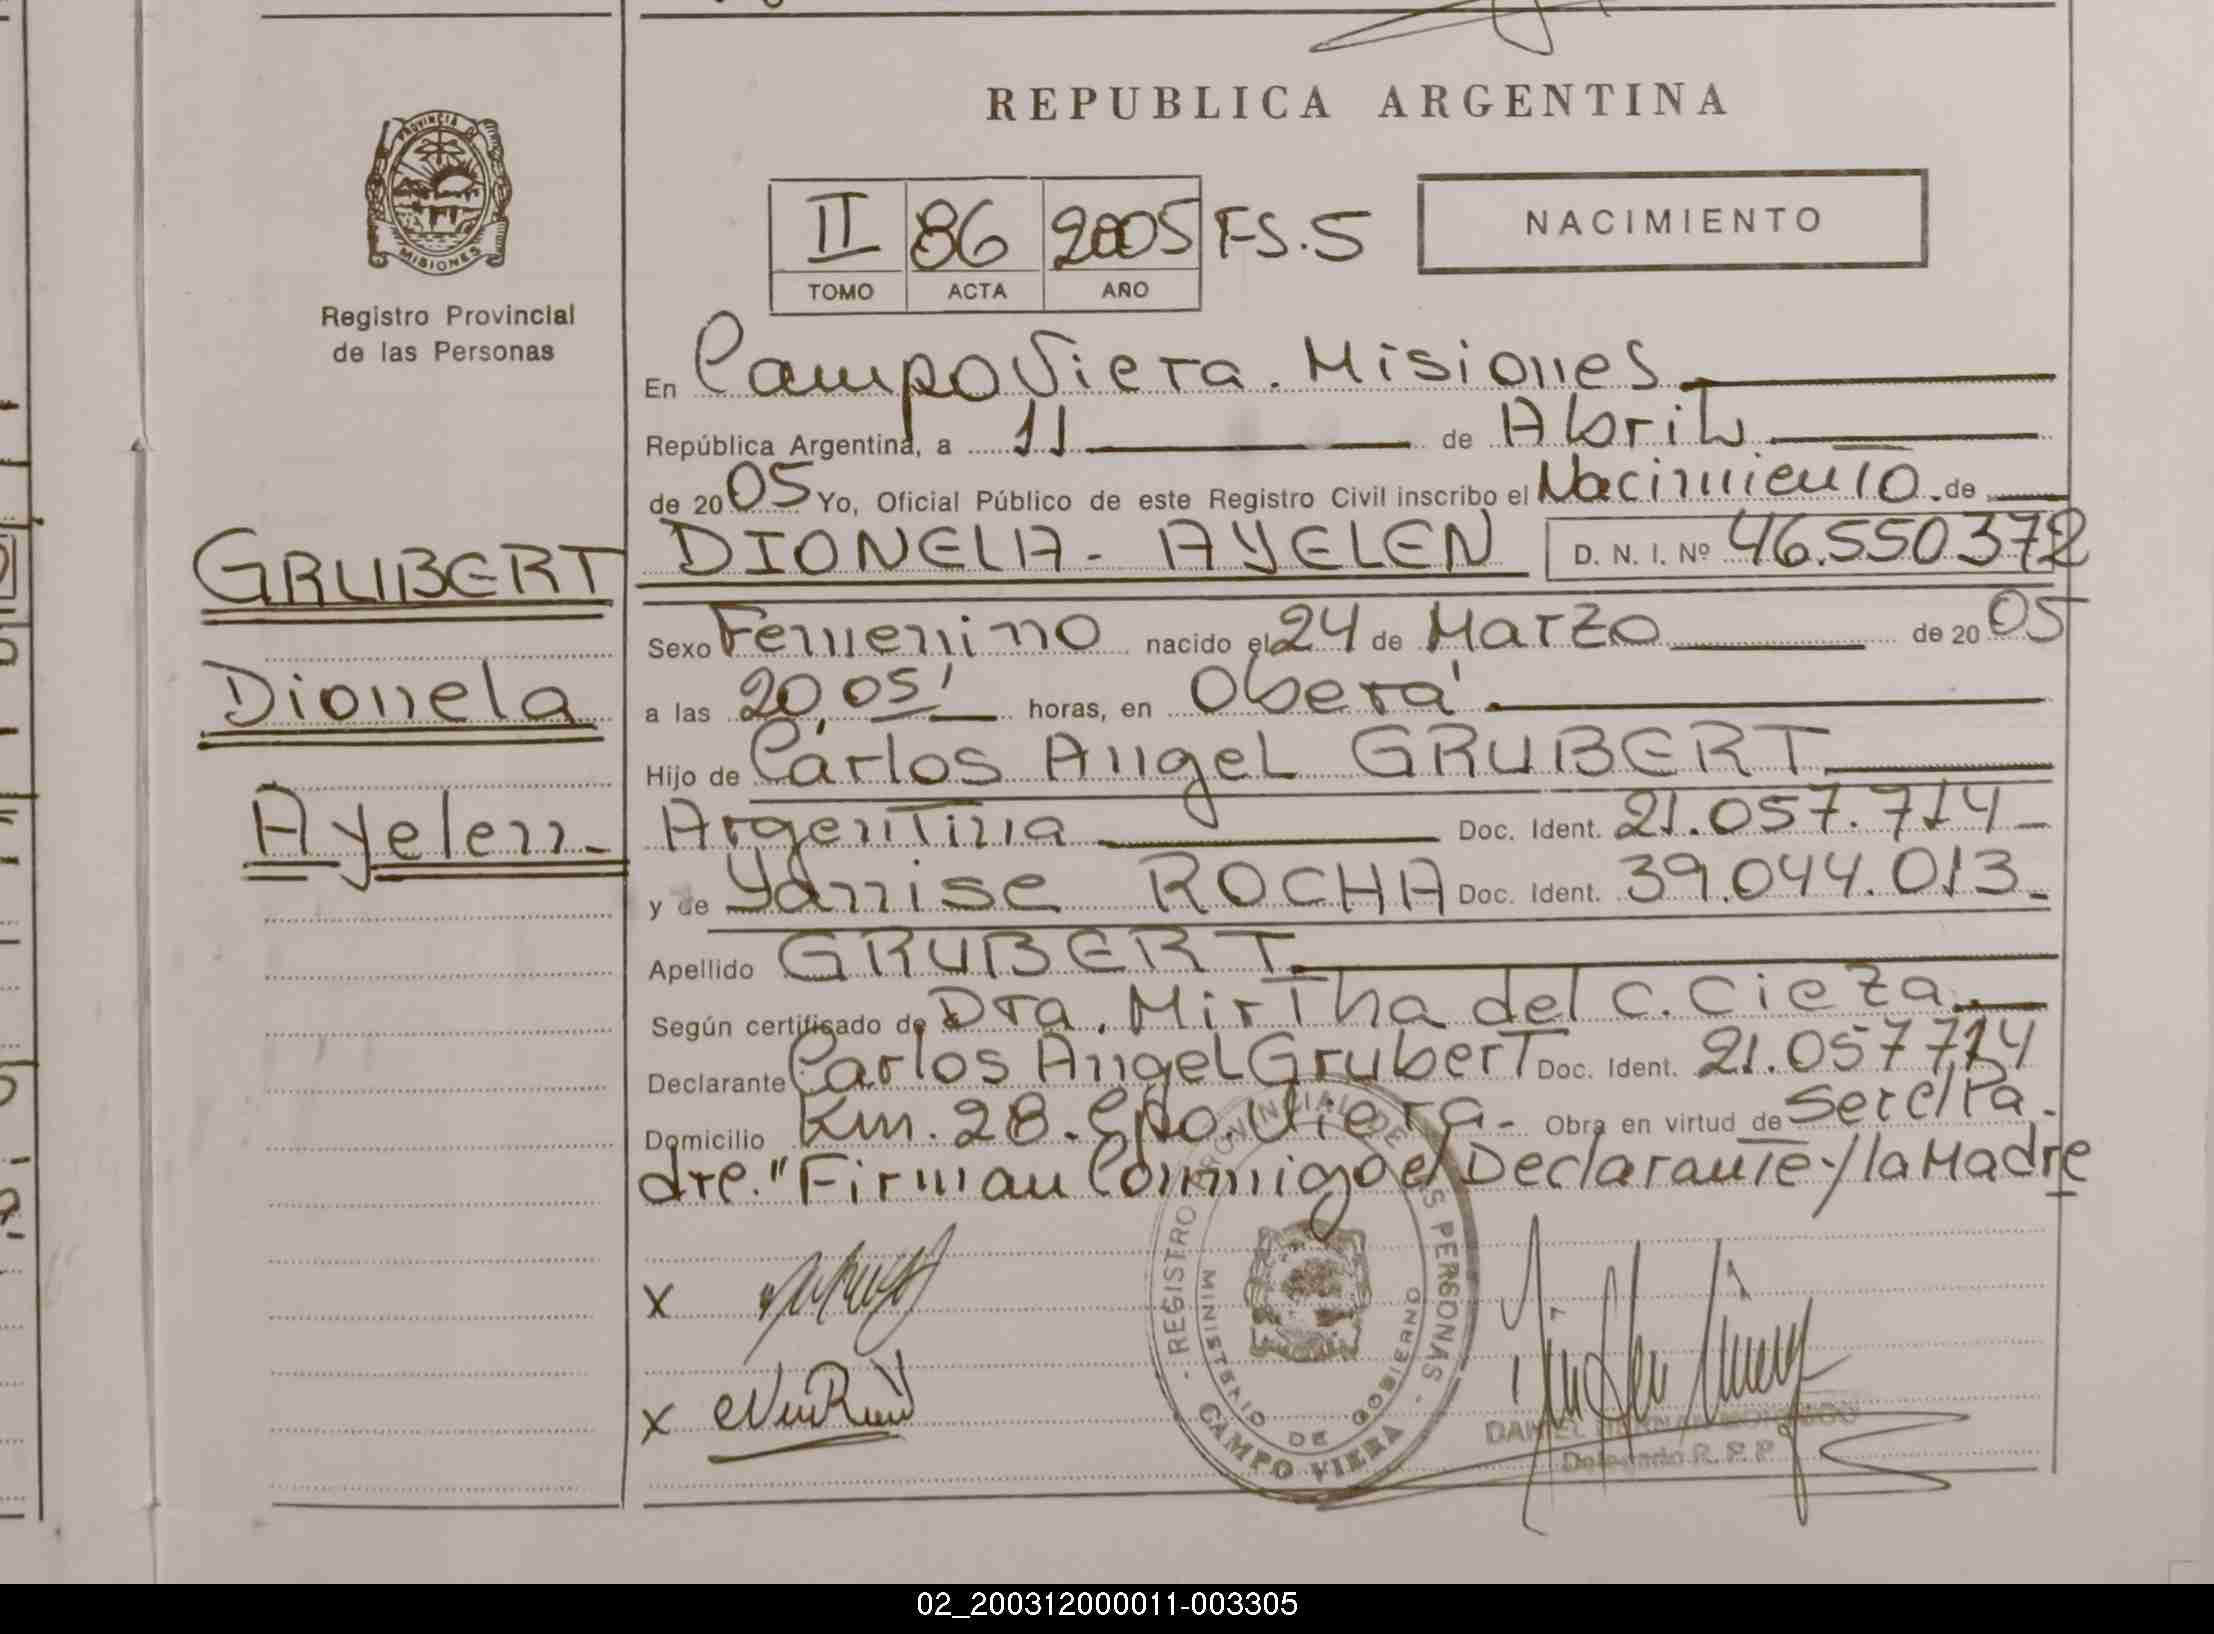 REPUBLICA ARGENTINA
PROVINCIA D
MISIONES
Registro Provincial
de las Personas
II 86 2005 FS.5
TOMO ACTA AÑO
NACIMIENTO
En Campo Viera. Misiones
República Argentina, a 11 de Abril
de 2005 Yo, Oficial Público de este Registro Civil inscribo el Nacimiento. de
GRUBERT
Dionela
Ayelen
DIONELA - AYELEN D. N. I. Nº 46.550372
Sexo Femenino nacido el 24 de Marzo de 2005
a las 20,05' horas, en Oberá
Hijo de Carlos Angel GRUBERT
Argentina Doc. Ident. 21.057.714
y de Yanise ROCHA Doc. Ident. 39.044.013
Apellido GRUBERT
Según certificado de Dra. Mirtha del C. Cieza
Declarante Carlos Angel Grubert Doc. Ident. 21.057714
Domicilio Km. 28. Cpo. Viera. Obra en virtud de Ser el Pa
dre." Firman Conmigo el Declarante y la Madre
X
X
REGISTRO PROVINCIAL DE LAS PERSONAS
MINISTERIO DE GOBIERNO
CAMPO VIERA
DANIEL
Delegado R. P. P.
02_200312000011-003305